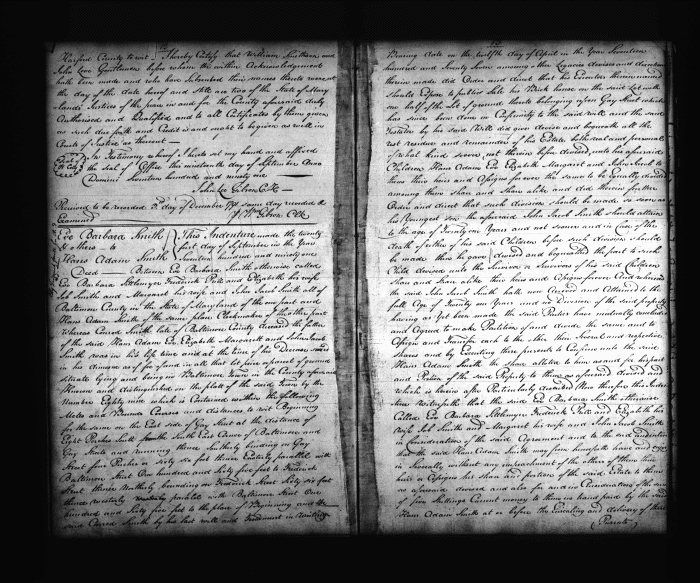 Harford County to wit. I hereby Certify that William Smithson and
John Love Gentlemen before whom the within Acknowledgement
hath been made and who have Subscribed their names thereto were at
the day of the date hereof and Still are two of the State of Mary
lands Justices of the peace in and for the County aforesaid duly
Authorised and Qualified and to all Certificates by them given
as such due faith and Credit is and ought to be given as well in
Courts of Justice as thereout
In Testimony whereof I hereto set my hand and affixed
the Seal of Office this nineteenth day of September Anno
Domini Seventeen hundred and ninety one
John Lee Gibson Clk
Received to be recorded 3d day of December 1791 same day recorded &
Examined Wm Gibson Clk
Eve Barbara Smith
& others to
Hans Adam Smith
Deed
This Indenture made the twenty
first day of September in the Year
Seventeen hundred and ninety one
Between Eve Barbara Smith otherwise called
Eve Barbara Frederick and Elizabeth his wife
Job Smith and Margaret his wife and John Jacob Smith all of
Baltimore County in the State of Maryland of the one part and
Hans Adam Smith of the same place Clockmaker of the other part
Whereas Conrod Smith late of Baltimore County deceased the father
of the said Hans Adam Eve Elizabeth Margarett and John Jacob
Smith was in his life time and at the time of his Decease seized
in his demesne as of fee of and in all that lot or parcel of ground
situate lying and being in Baltimore Town in the County aforesaid
Known and distinguished on the platt of the said Town by the
Number Eighty nine which is Contained within the following
Metes and Bounds Courses and distances to wit Beginning
for the same on the East side of Gay Street at the distance of
Eight Perches South from the South East Corner of Baltimore and
Gay Streets and running thence Southerly binding on Gay
Street four Perches or Sixty six feet thence Easterly parallel with
Baltimore Street One hundred and Sixty five feet to Frederick
Street thence Northerly bounding on Frederick Street Sixty six feet
thence westerly parallel with Baltimore Street One
hundred and Sixty five feet to the place of Beginning and the
said Conrod Smith by his last will and Testament in Writing
Bearing date on the twelfth day of April in the Year Seventeen
hundred and Seventy amoung other Legacies devises and directions
therein made did Order and direct that his Executors therein named
should Expose to public sale his Brick house on the said Lot with
one half of the Lot of ground thereto belonging upon Gay Street which
has since been done in Conformity to the said will and the said
Testator by his said Will did give devise and bequeath all the
rest residue and remainder of his Estate both real and personal
of what kind soever not therein before devised unto his aforesaid
Children Hans Adam Eve Elizabeth Margaret and John Jacob to
have them their heirs and Assigns forever the same to be Equally divided
among them share and share alike and did therein further
Order and direct that such division should be made so soon as
his Youngest son the aforesaid John Jacob Smith should attain
to the age of Twenty one Years and not sooner and in Case of the
death of either of his said Children before such division should
be made then he gave devised and bequeathed the part to such
Child devised unto the Survivor or Survivors of his said Children
share and share alike their heirs and Assigns forever And whereas
the said John Jacob Smith hath now Arrived and Attained to the
full Age of Twenty one Years and no Division of the said property
having as Yet been made the said Parties have mutually concluded
and Agreed to make Partition of and divide the same and to
Assign and Transfer each to the other their Several and respective
shares and by Executing these presents to Confirm unto the said
Hans Adam Smith the share allotted to him as and for his part
and Portion of the said Property to them as aforesaid devised and
which is herein after Particularly described Now therefore this Inden
ture Witnesseth that the said Eve Barbara Smith otherwise
Called Eve Barbara Frederick and Elizabeth his
wife Job Smith and Margaret his wife and John Jacob Smith
in Consideration of the said Agreement and to the end and intention
that the said Hans Adam Smith may from henceforth have and enjoy
in Severalty without any encroachment of the others of them their
heirs or Assigns his share and portion of the said Estate to them
as aforesaid devised and also for and in Consideration of the sum
of five shillings Current money to them in hand paid by the said
Hans Adam Smith at or before the Ensealing and delivery of these
Presents